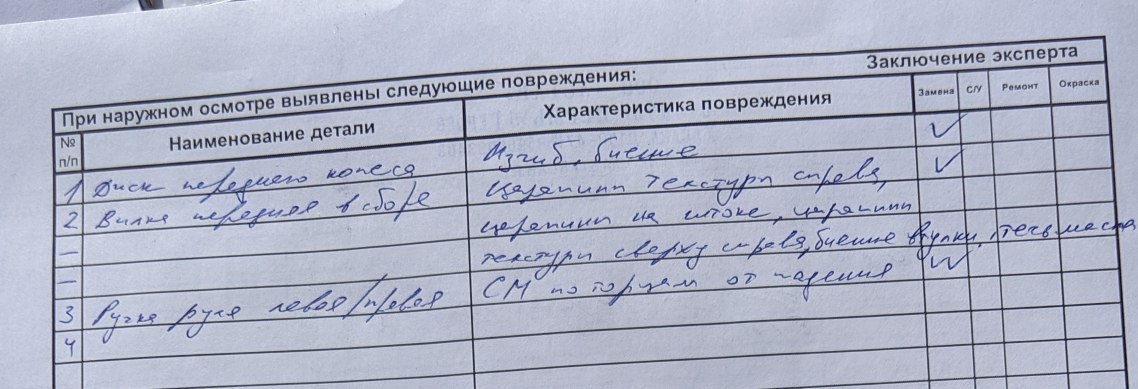 При наружном осмотре выявлены следующие повреждения: Заключение эксперта
№ п/п Наименование детали Характеристика повреждения Замена С/У Ремонт Окраска
1 Диск переднего колеса Изгиб, биение ✓
2 Вилка передняя в сборе Царапины текстуры справа, ✓
— царапины на штоке, царапины
— текстуры сверху справа, биение втулки, течь масла
3 Ручка руля левая/правая СМ по торцам от падения ✓
4